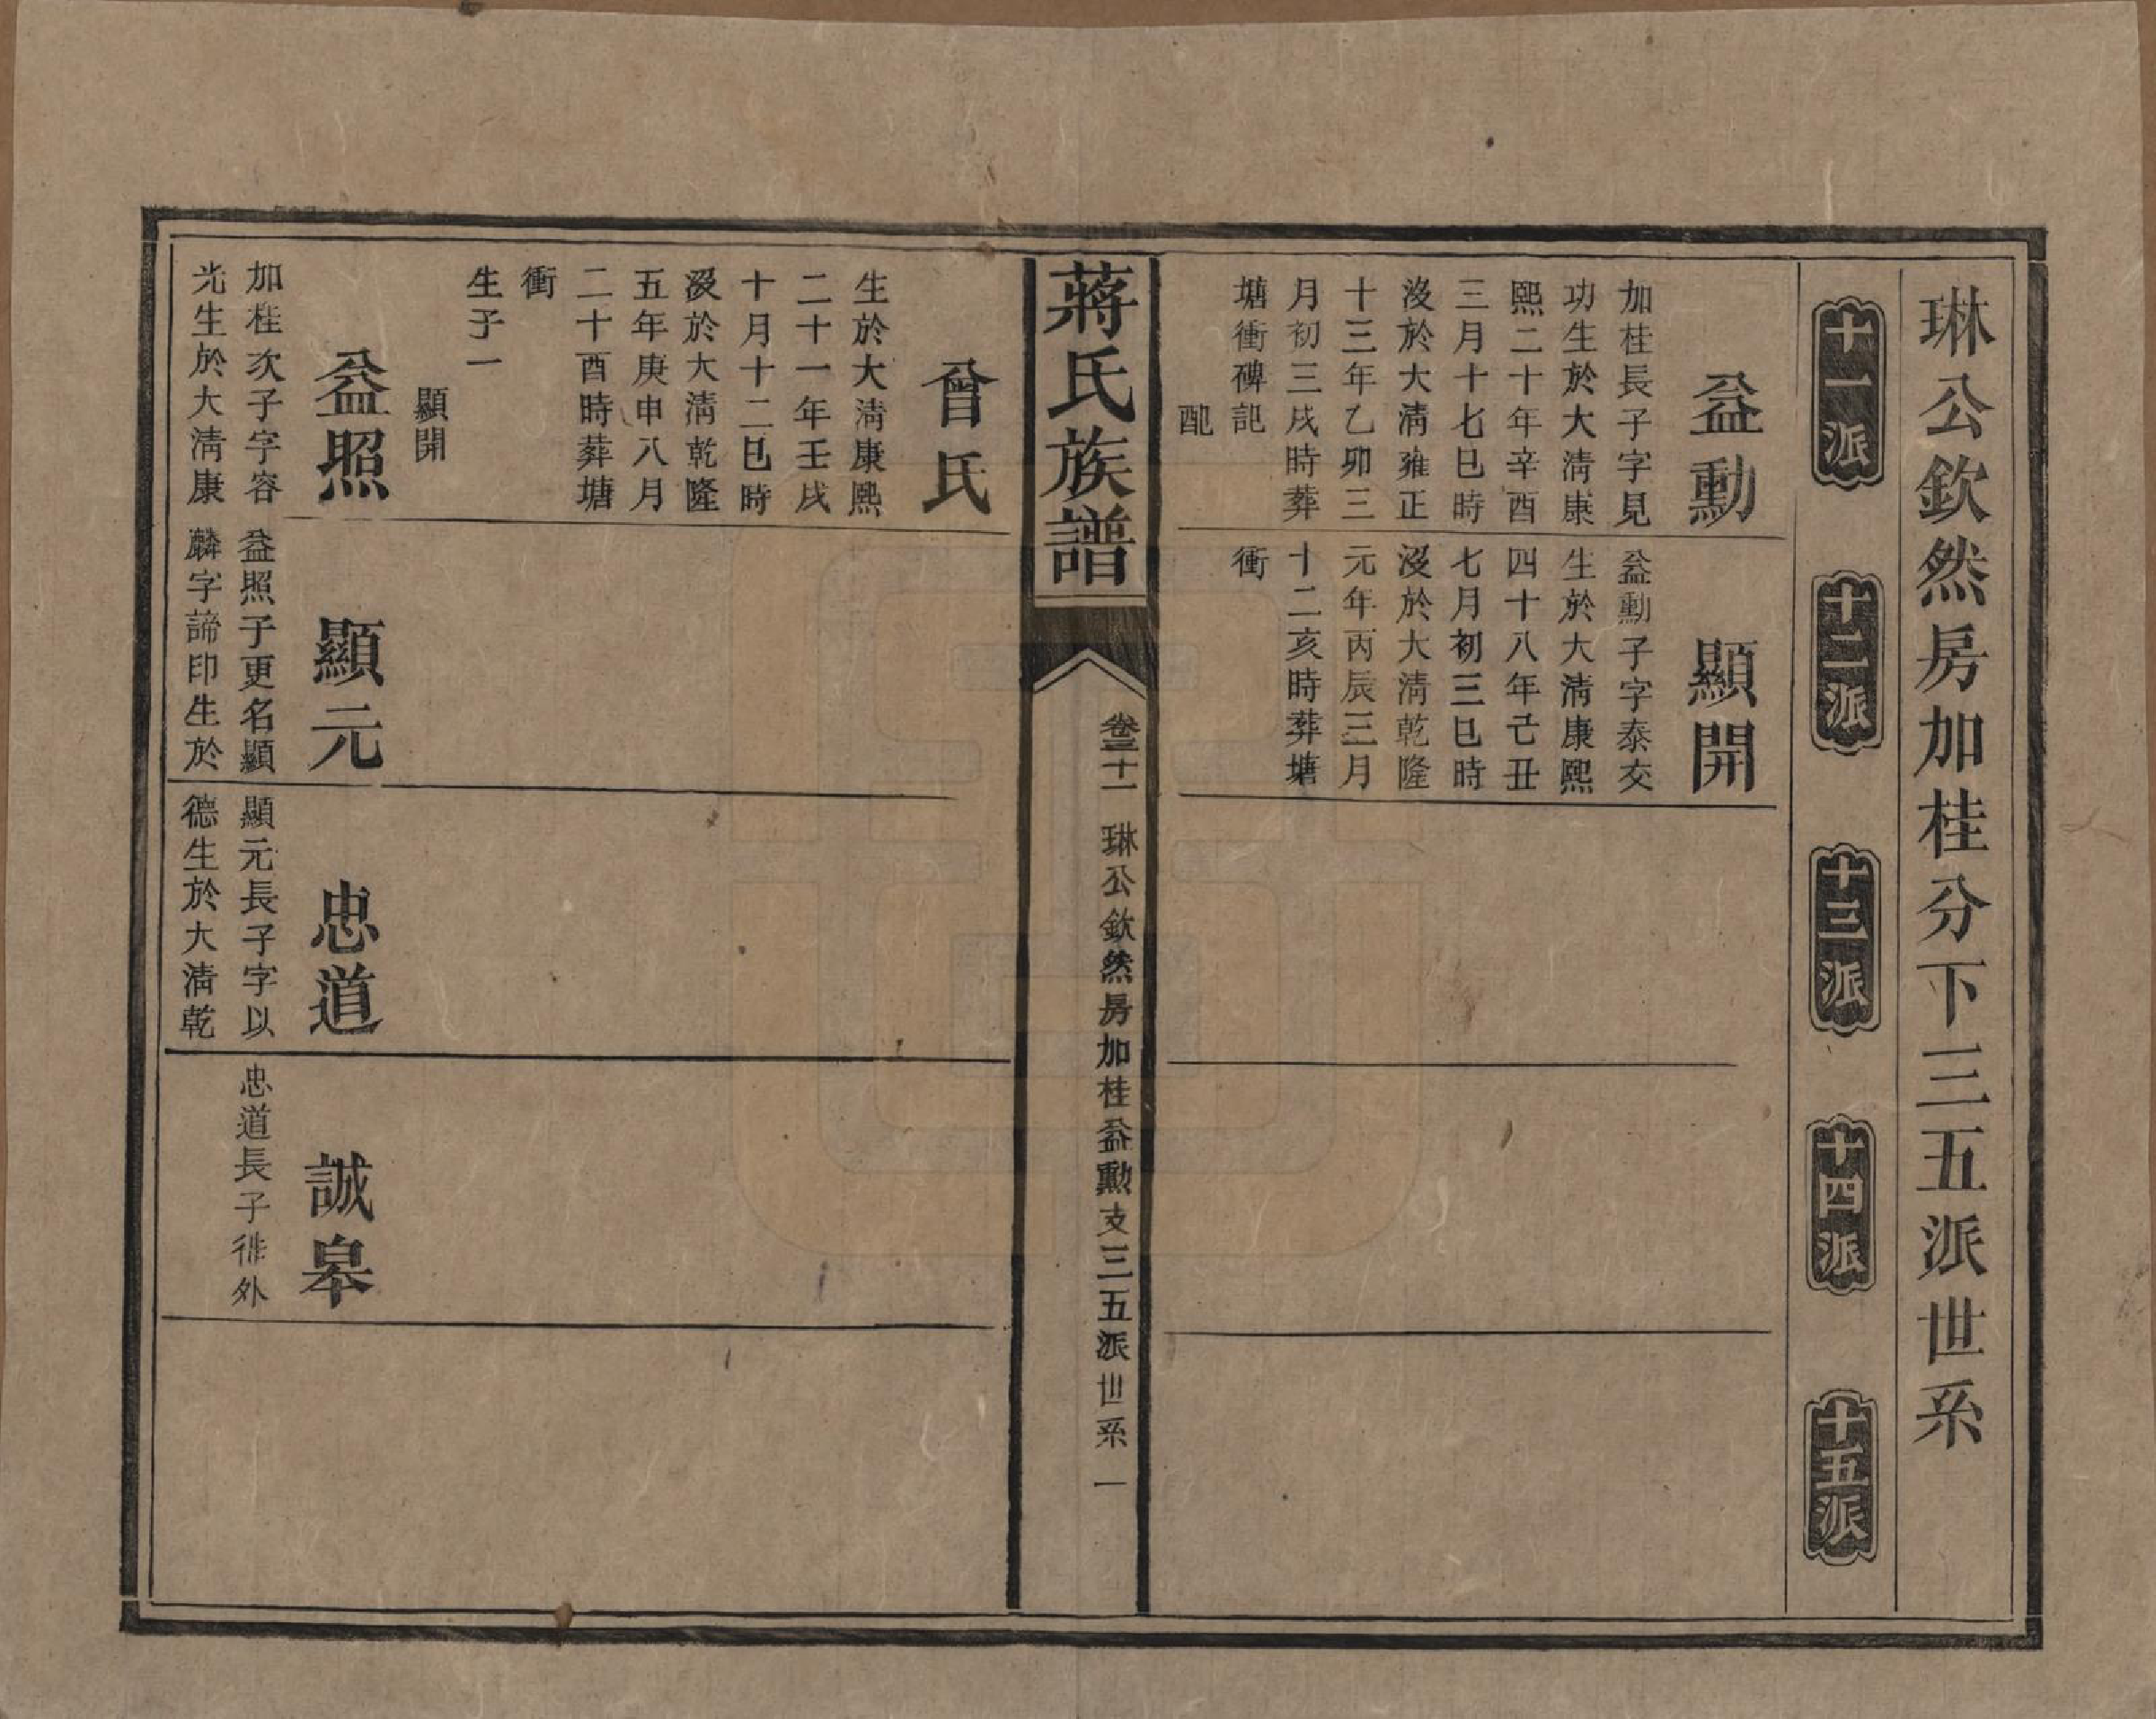 琳公欽然房加桂分下三五派世系
十一派
十二派
十三派
十四派
十五派
益勳
加桂長子字見
功生於大淸康
熙二十年辛酉
三月十七巳時
沒於大淸雍正
十三年乙卯三
月初三戌時葬
塘衝碑記
配
顯開
益勳子字泰交
生於大淸康熙
四十八年己丑
七月初三巳時
沒於大淸乾隆
元年丙辰三月
十二亥時葬塘
衝
蔣氏族譜
卷三十一 琳公欽然房加桂益勳支三五派世系 一
曾氏
生於大淸康熙
二十一年壬戌
十月十二巳時
沒於大淸乾隆
五年庚申八月
二十酉時葬塘
衝
生子一
顯開
益照
加桂次子字容
光生於大淸康
顯元
益照子更名顯
麟字諦印生於
忠道
顯元長子字以
德生於大淸乾
誠皋
忠道長子徙外